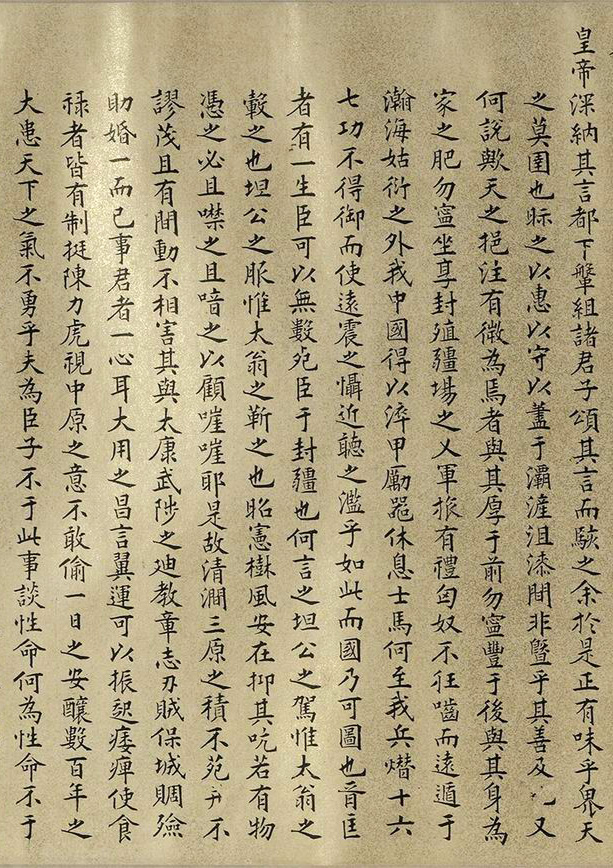 皇帝深納其言都下舉組諸君子頌其言而駭之余於是正有味乎界天
之莫圉也眎之以惠以守以蓋于灞滻沮漆閒非暨乎其善及又
何說歟天之挹注有徵為焉者與其厚于前勿寧豐于後與其身為
家之肥勿寧坐享封殖疆場之乂軍旅有禮匈奴不狂嚙而遠遁于
瀚海姑衍之外我中國得以淬甲勵器休息士馬何至我兵熸十六
七功不得御而使遠震之懾近聽之濫乎如此而國乃可圖也晉匡
者有一生臣可以無數宛臣于封疆也何言之坦公之駕惟太翁之
轂之也坦公之脤惟太翁之靳之也昭憲樹風安在抑其吭若有物
憑之必且噤之且喑之以顧嗺嗺耶是故清澗三原之積不苑并不
謬茂且有間動不相害其與太康武陟之迪教章志刃賊保城賙殮
助婚一而已事君者一心耳大用之昌言翼運可以振起痿痺使食
祿者皆有制挺陳力虎視中原之意不敢偷一日之安釀數百年之
大患天下之氣不勇乎夫為臣子不于此事談性命何為性命不于